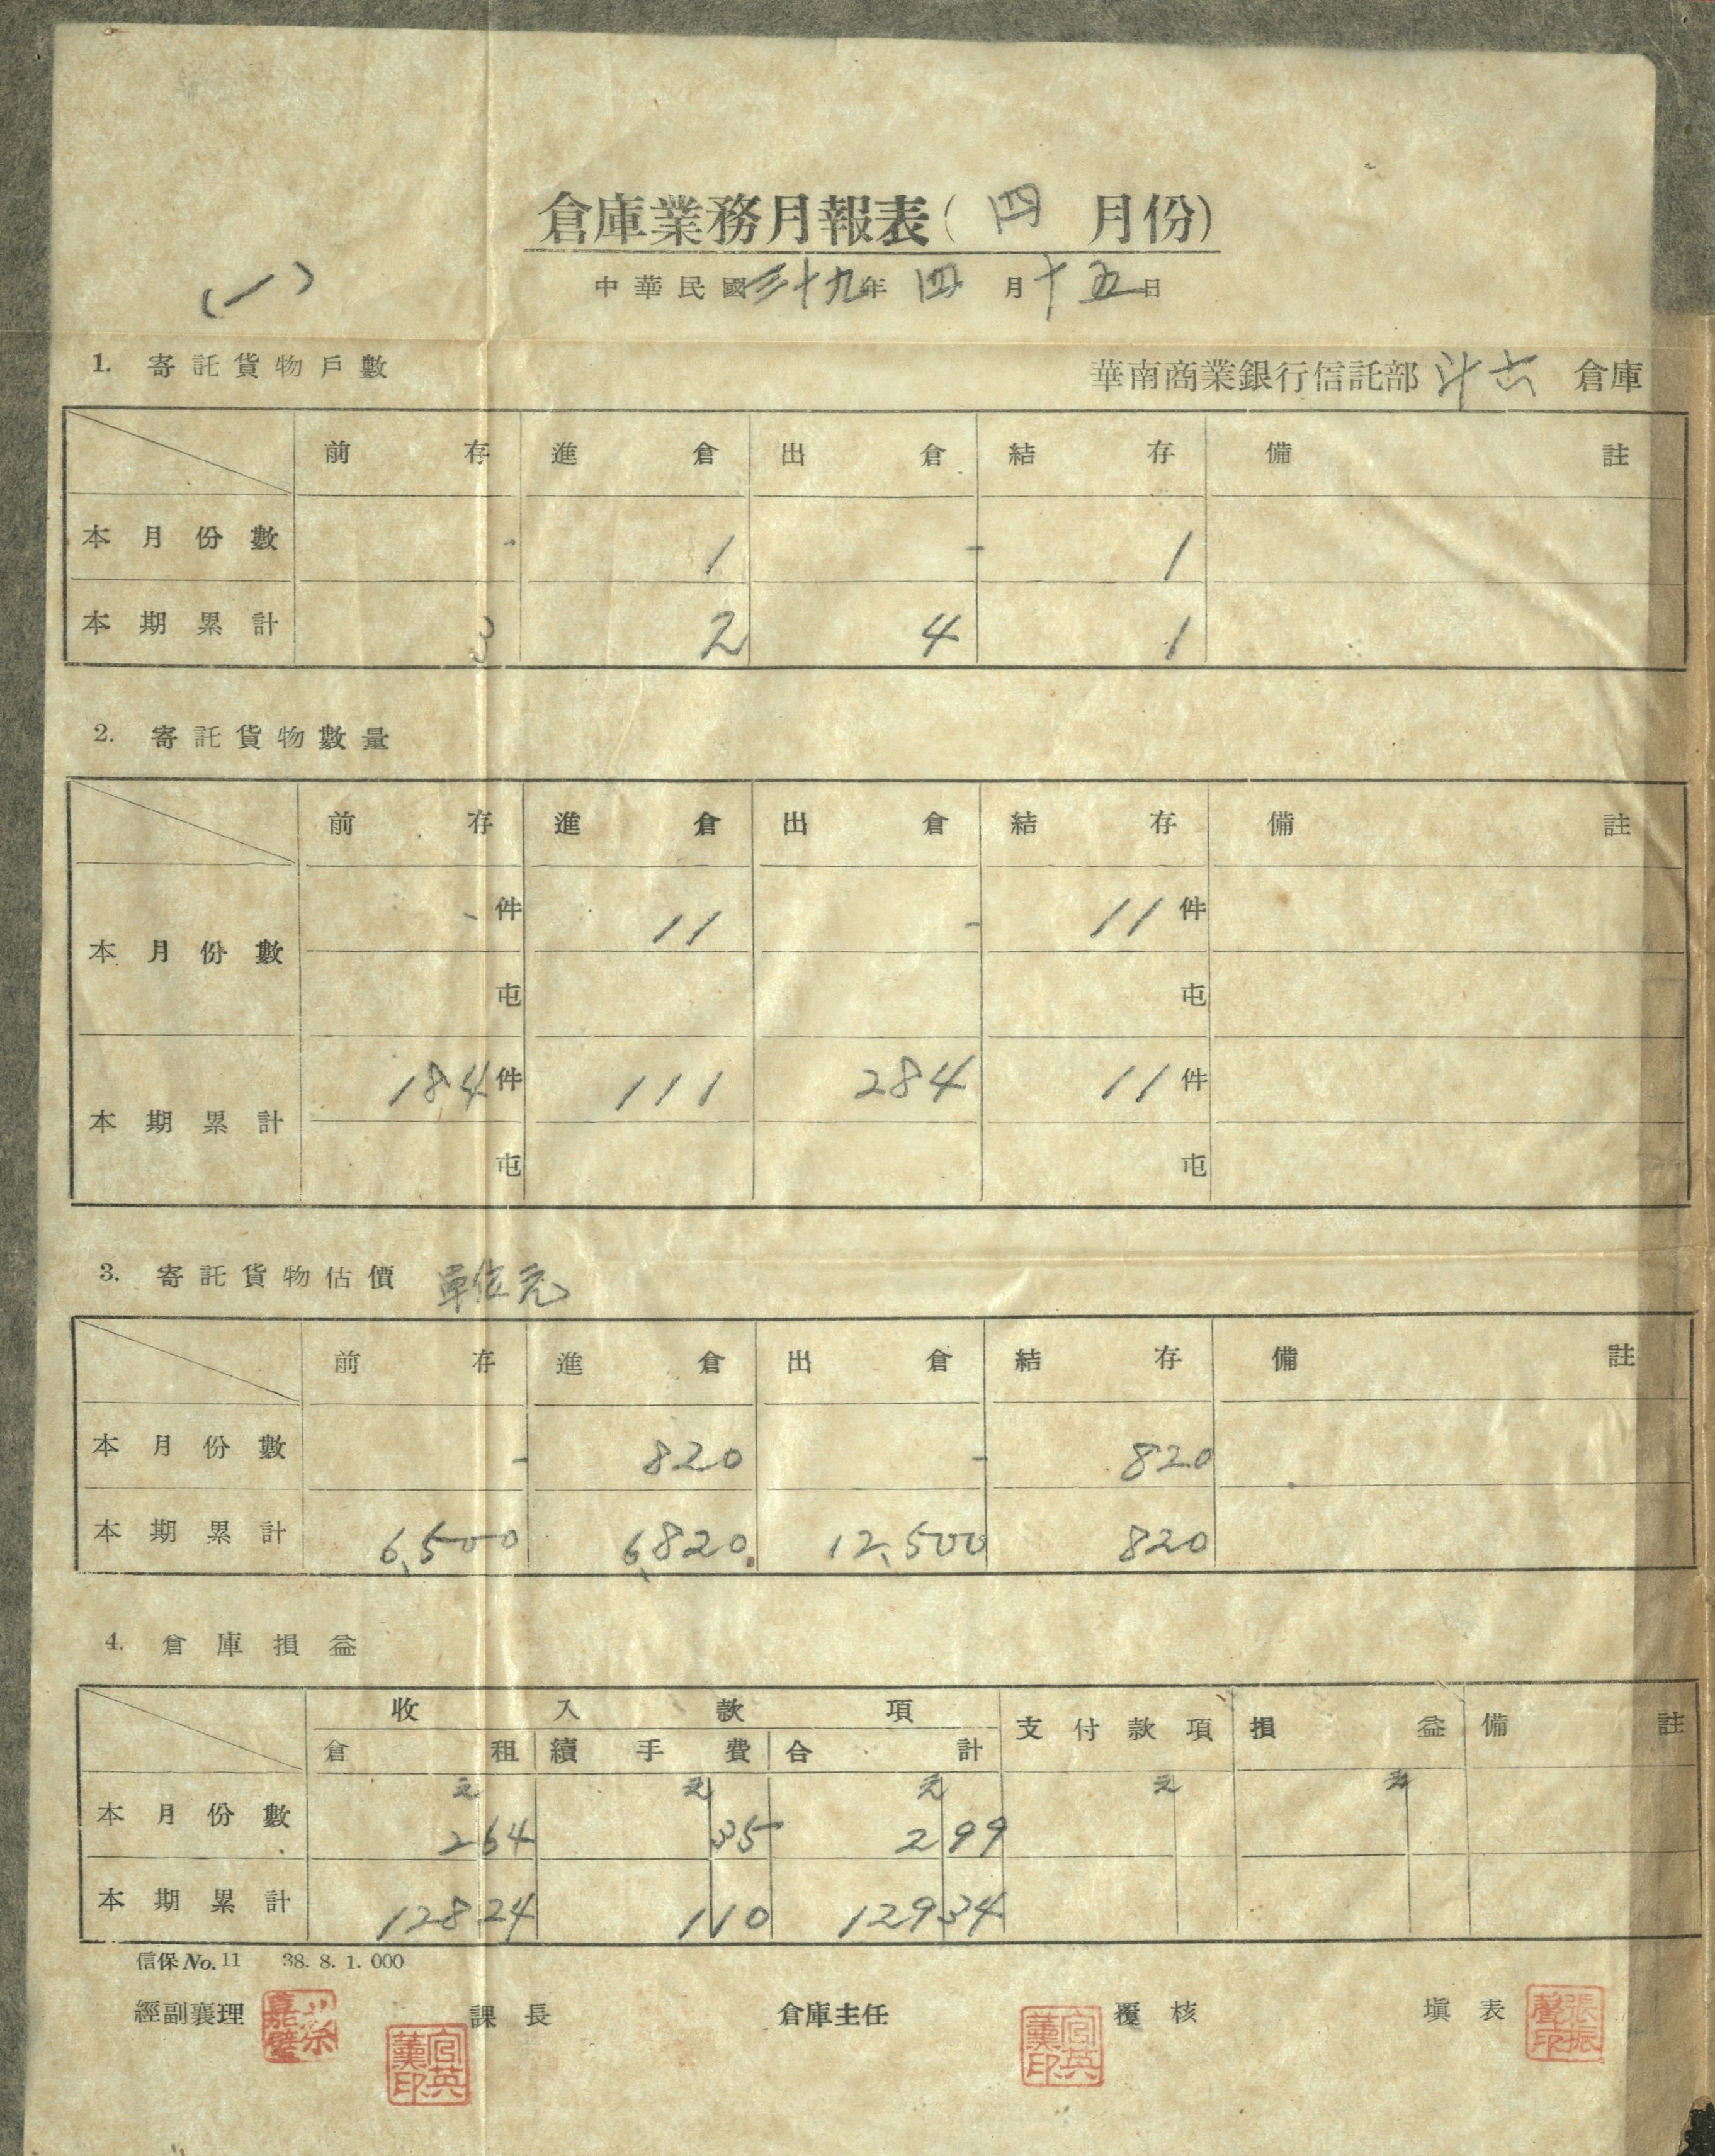 倉庫業務月報表(四月份)
(一)
中華民國三十九年四月十五日
1. 寄託貨物戶數
華南商業銀行信託部斗六倉庫
前存 進倉 出倉 結存 備註
本月份數 - 1 - 1
本期累計 3 2 4 1
2. 寄託貨物數量
前存 進倉 出倉 結存 備註
本月份數 -件 11 - 11件
屯 屯
本期累計 184件 111 284 11件
屯 屯
3. 寄託貨物估價 單位元
前存 進倉 出倉 結存 備註
本月份數 - 820 - 820
本期累計 6,500 6,820. 12,500 820
4. 倉庫損益
收入款項 支付款項 損益 備註
倉租 續手費 合計
元 元 元 元 元
本月份數 2 64 35 2 99
本期累計 128 24 1 10 129 34
信保 No. 11 38. 8. 1. 000
經副襄理 課長 倉庫主任 覆核 塡表
嘉璧
官英薰印
官英薰印
張振聲印